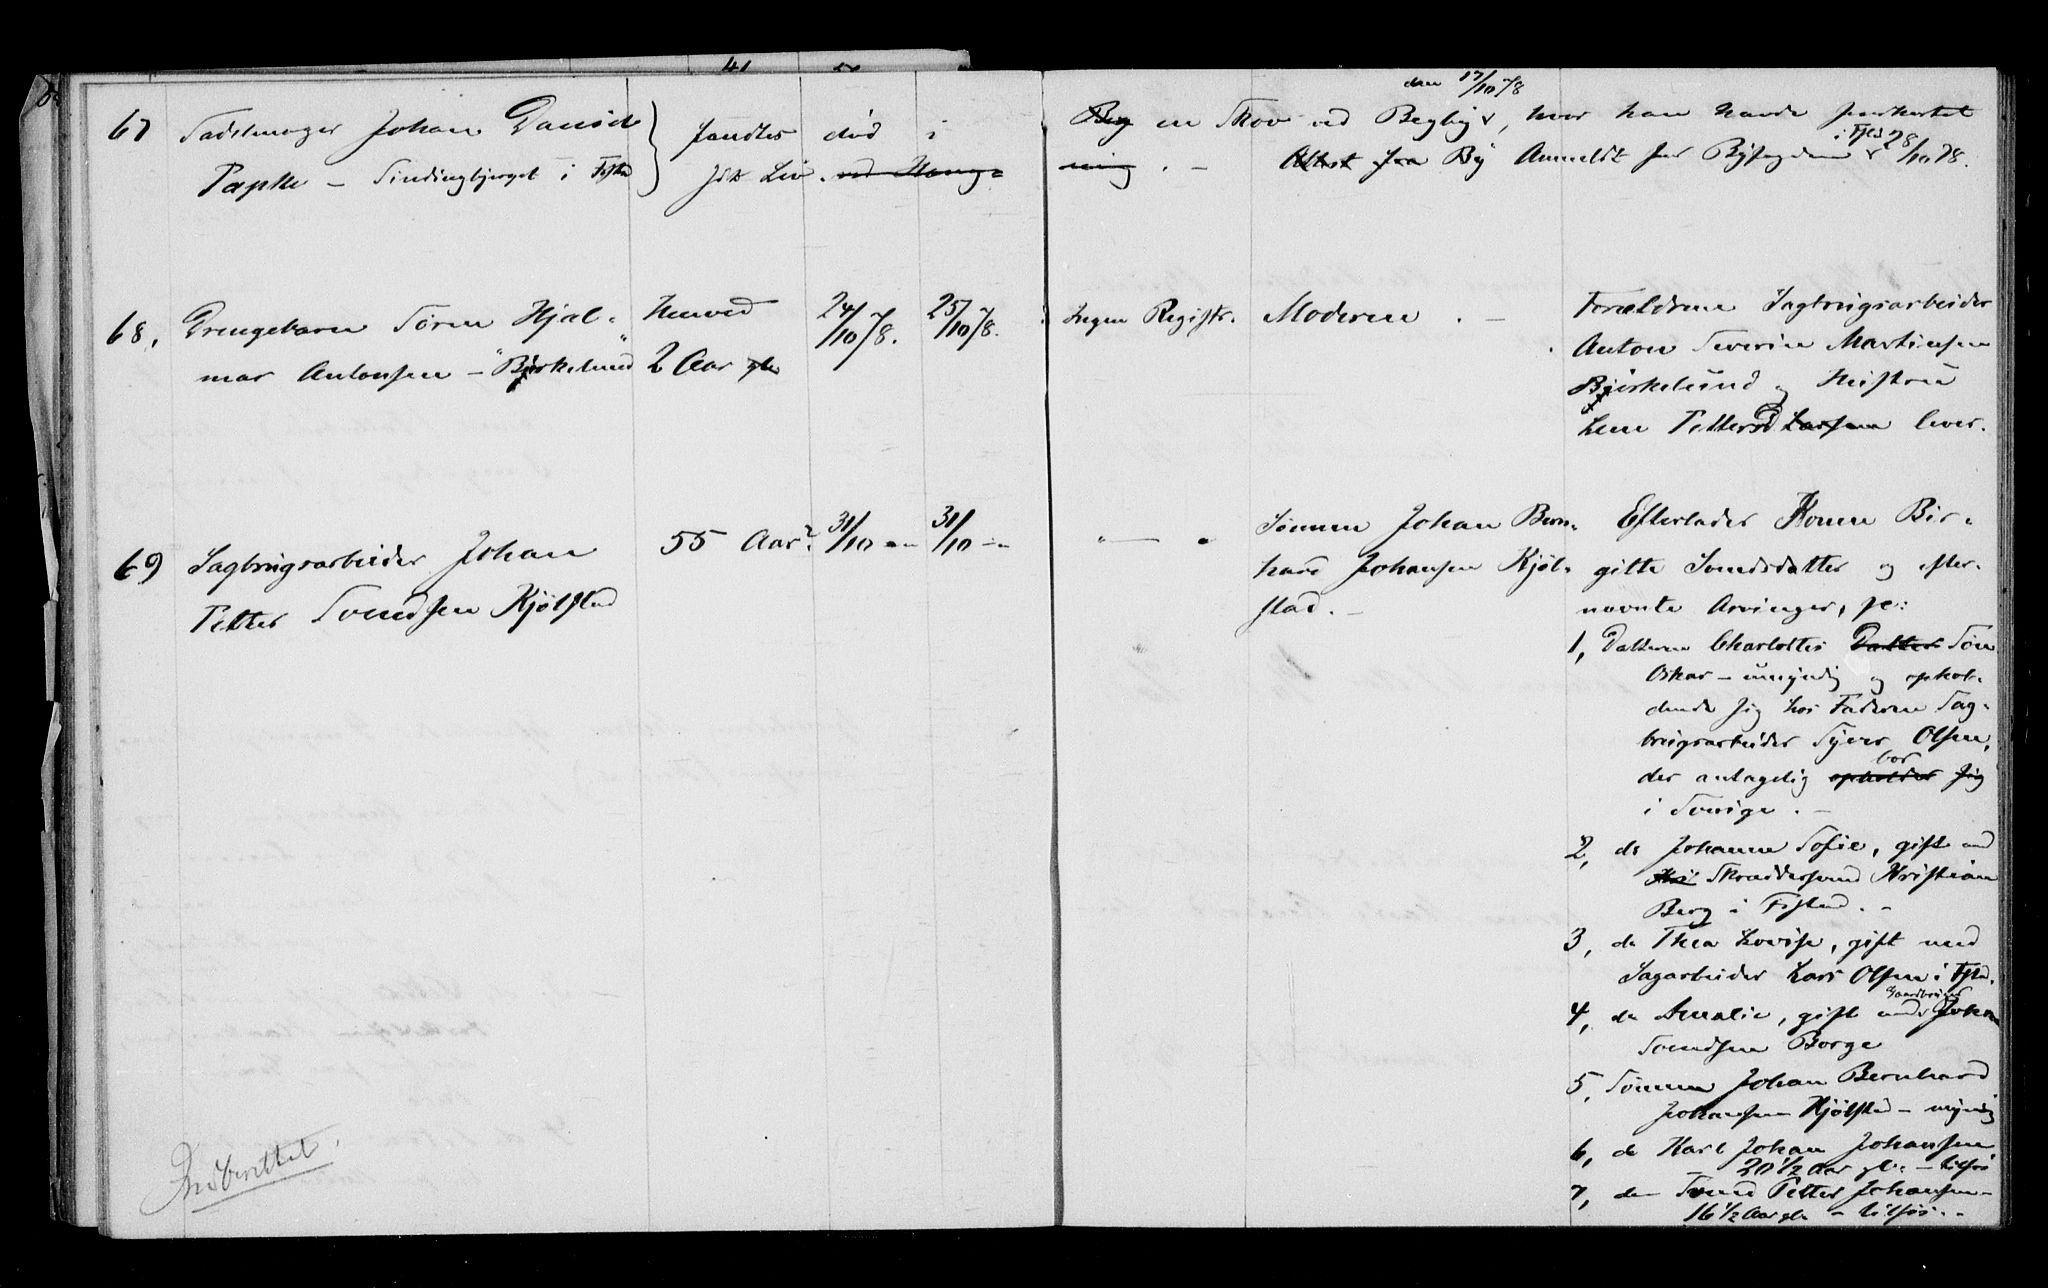 67 Sadelmager Johan David
Papke – Sindingbjerget i Fstad
fandtes død i
sit Liv. ved Hæng-
den 17/10 78
Beg en Skov ved Begby, hvor han havde forkortet
ning. – Attest fra By Anmeldt for Byfogden i Fstd 28/10 78.
68, Drengebarn Søren Hjal-
mar Antonsen – "Bjørkelund"
Henved
2 Aar gl.
24/10 78.
25/10 78.
Ingen Registr.
Moderen. –
Forældrene Sagbrugsarbeider
Anton Severin Martinsen
Bjørkelund og Hustru
Lene Pettersd Larsen lever.
69 Sagbrugsarbeider Johan
Petter Svendsen Kjølstad
55 Aar?
31/10 –"–
31/10 –"–
" — "
Sønnen Johan Bern-
hard Johansen Kjøl-
stad. –
Efterlader Konen Bir-
gitte Svendsdatter og efter-
nævnte Arvinger,
1, Datteren Charlottes Datter Søn
Oskar – umyndig og ophol-
dende sig hos Faderen Sag-
brugsarbeider Syver Olsen,
der antagelig opholder sig bor
i Sverige. –
2, do Johanne Sofie, gift med
Skræddersvend Kristian
Berg i Fstad. –
3, do Thea Lovise, gift med
Sagarbeider Lars Olsen i Fstd.
4, do Amalie, gift med Gaardbruger Johan
Svendsen Borge
5, Sønnen Johan Bernhard
Johansen Kjølstad – myndig
6, do Karl Johan Johansen
20 1/2 Aar gl. – tilsjøs
7, do Svend Petter Johansen –
16 1/2 Aar gl. – tilsjøs. –
Indberettet.